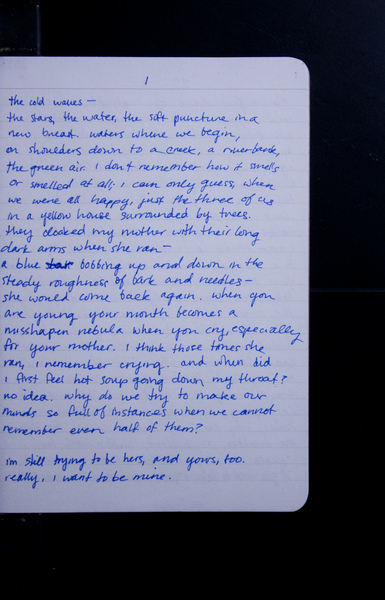 1
the cold waves —
the stars, the water, the soft puncture in a
new breast. waters where we begin,
on shoulders down to a creek, a riverbank,
the green air. i don't remember how it smells
or smelled at all; i can only guess, when
we were all happy, just the three of us
in a yellow house surrounded by trees.
they cloaked my mother with their long
dark arms when she ran —
a blue bobbing up and down in the
steady roughness of bark and needles —
she would come back again. when you
are young your mouth becomes a
misshapen nebula when you cry, especially
for your mother. i think those times she
ran, i remember crying. and when did
i first feel hot soup going down my throat?
no idea. why do we try to make our
minds so full of instances when we cannot
remember even half of them?
i'm still trying to be hers, and yours, too.
really, i want to be mine.